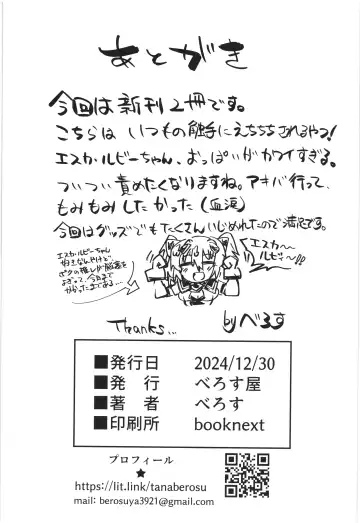 あとがき
今回は新刊2冊です。
こちらは いつもの触手にえちちちされるやつ!
エスカ・ルビーちゃん、おっぱいがカワイすぎる。
ついつい責めたくなりますね。アキバ行って、
もみもみしたかった(血涙)
今回はグッズでもたくさんいじめれたので満足です。
エスカ・ルビーちゃん
好きなんやけど
ボクの推し
よって、今日まで
エスカ〜
ルビー〜!!
Thanks...
by べろす
■発行日 2024/12/30
■発 行 べろす屋
■著 者 べろす
■印刷所 booknext
プロフィール
★
https://lit.link/tanaberosu
mail: berosuya3921@gmail.com